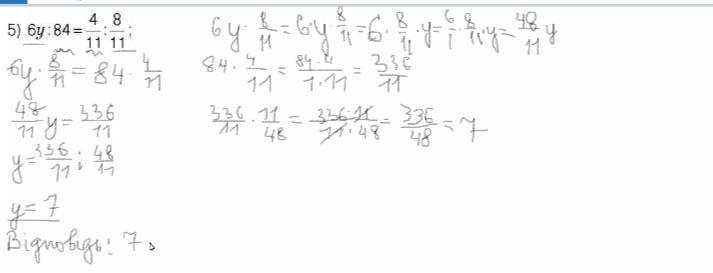 5) 6y:84=4/11:8/11;
6y·8/11=84·4/11
48/11 y=336/11
y=336/11:48/11
y=7
Відповідь: 7.
6y·8/11=6·y·8/11=6·8/11·y=6/1·8/11·y=48/11 y
84·4/11=84·4/1·11=336/11
336/11·11/48=336·11/11·48=336/48=7